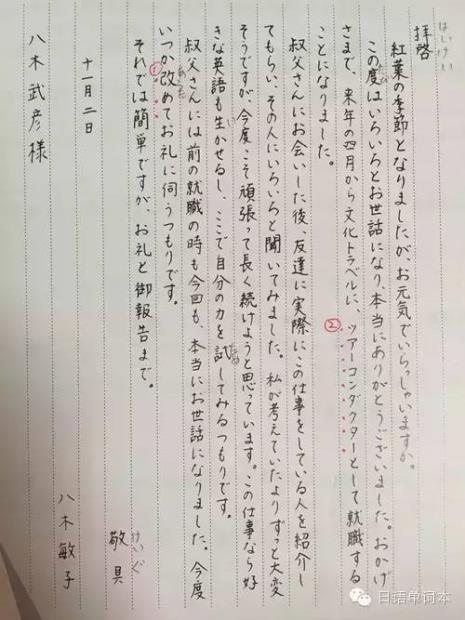 拝啓
はいけい
紅葉の季節となりましたが、お元気でいらっしゃいますか。
この度はいろいろとお世話になり、本当にありがとうございました。おかげ
たび
さまで、来年の四月から文化トラベルに、ツアーコンダクターとして就職する
②
ことになりました。
叔父さんにお会いした後、友達に実際にこの仕事をしている人を紹介し
てもらい、その人にいろいろと聞いてみました。私が考えていたよりずっと大変
そうですが、今度こそ頑張って長く続けようと思っています。この仕事なら好
きな英語も生かせるし、ここで自分の力を試してみるつもりです。
い
ため
叔父さんには前の就職の時も今回も、本当にお世話になりました。今度
いつか改めてお礼に伺うつもりです。
①
あらた
それでは簡単ですが、お礼と御報告まで。
敬具
けいぐ
十一月二日
八木敏子
八木武彦様
日语单词本